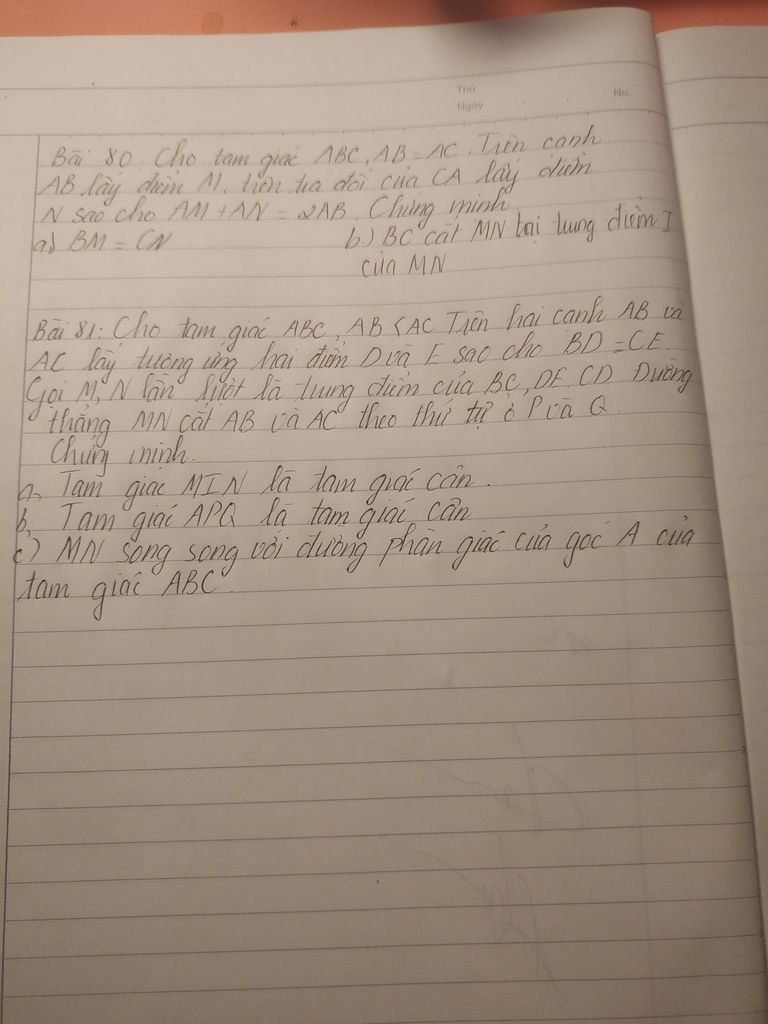 Thứ
No.
Ngày
Bài 80. Cho tam giác ABC, AB = AC. Trên cạnh
AB lấy điểm M, trên tia đối của CA lấy điểm
N sao cho AM + AN = 2AB. Chứng minh
a) BM = CN
b) BC cắt MN tại trung điểm I
của MN
Bài 81: Cho tam giác ABC, AB < AC Trên hai cạnh AB và
AC lấy tương ứng hai điểm D và E sao cho BD = CE.
Gọi M, N lần lượt là trung điểm của BC, DE, CD. Đường
thẳng MN cắt AB và AC theo thứ tự ở P và Q.
Chứng minh.
a, Tam giác MIN là tam giác cân.
b, Tam giác APQ là tam giác cân
c) MN song song với đường phân giác của góc A của
tam giác ABC.